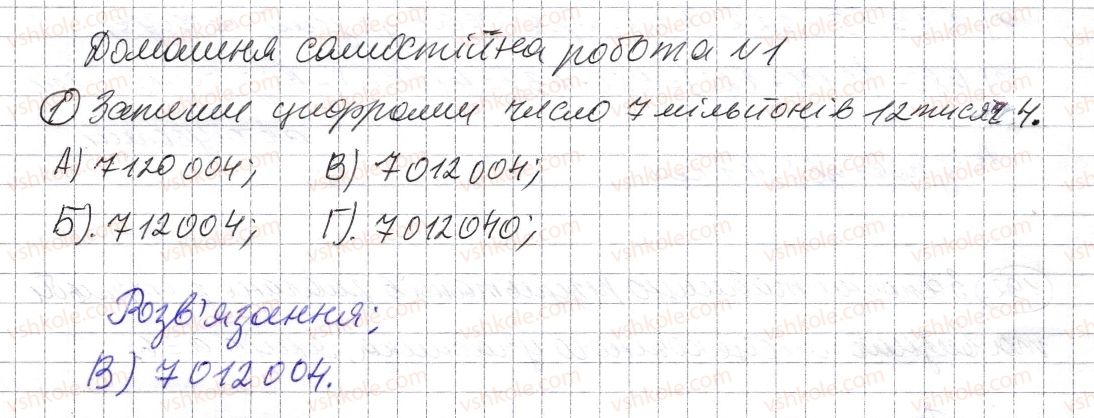 Домашня самостійна робота №1
1) Запиши цифрами число 7 мільйонів 12 тисяч 4.
А) 7120 004; В) 7 012 004;
Б). 712 004; Г). 7 012 040;
Розв'язання;
В) 7 012 004.